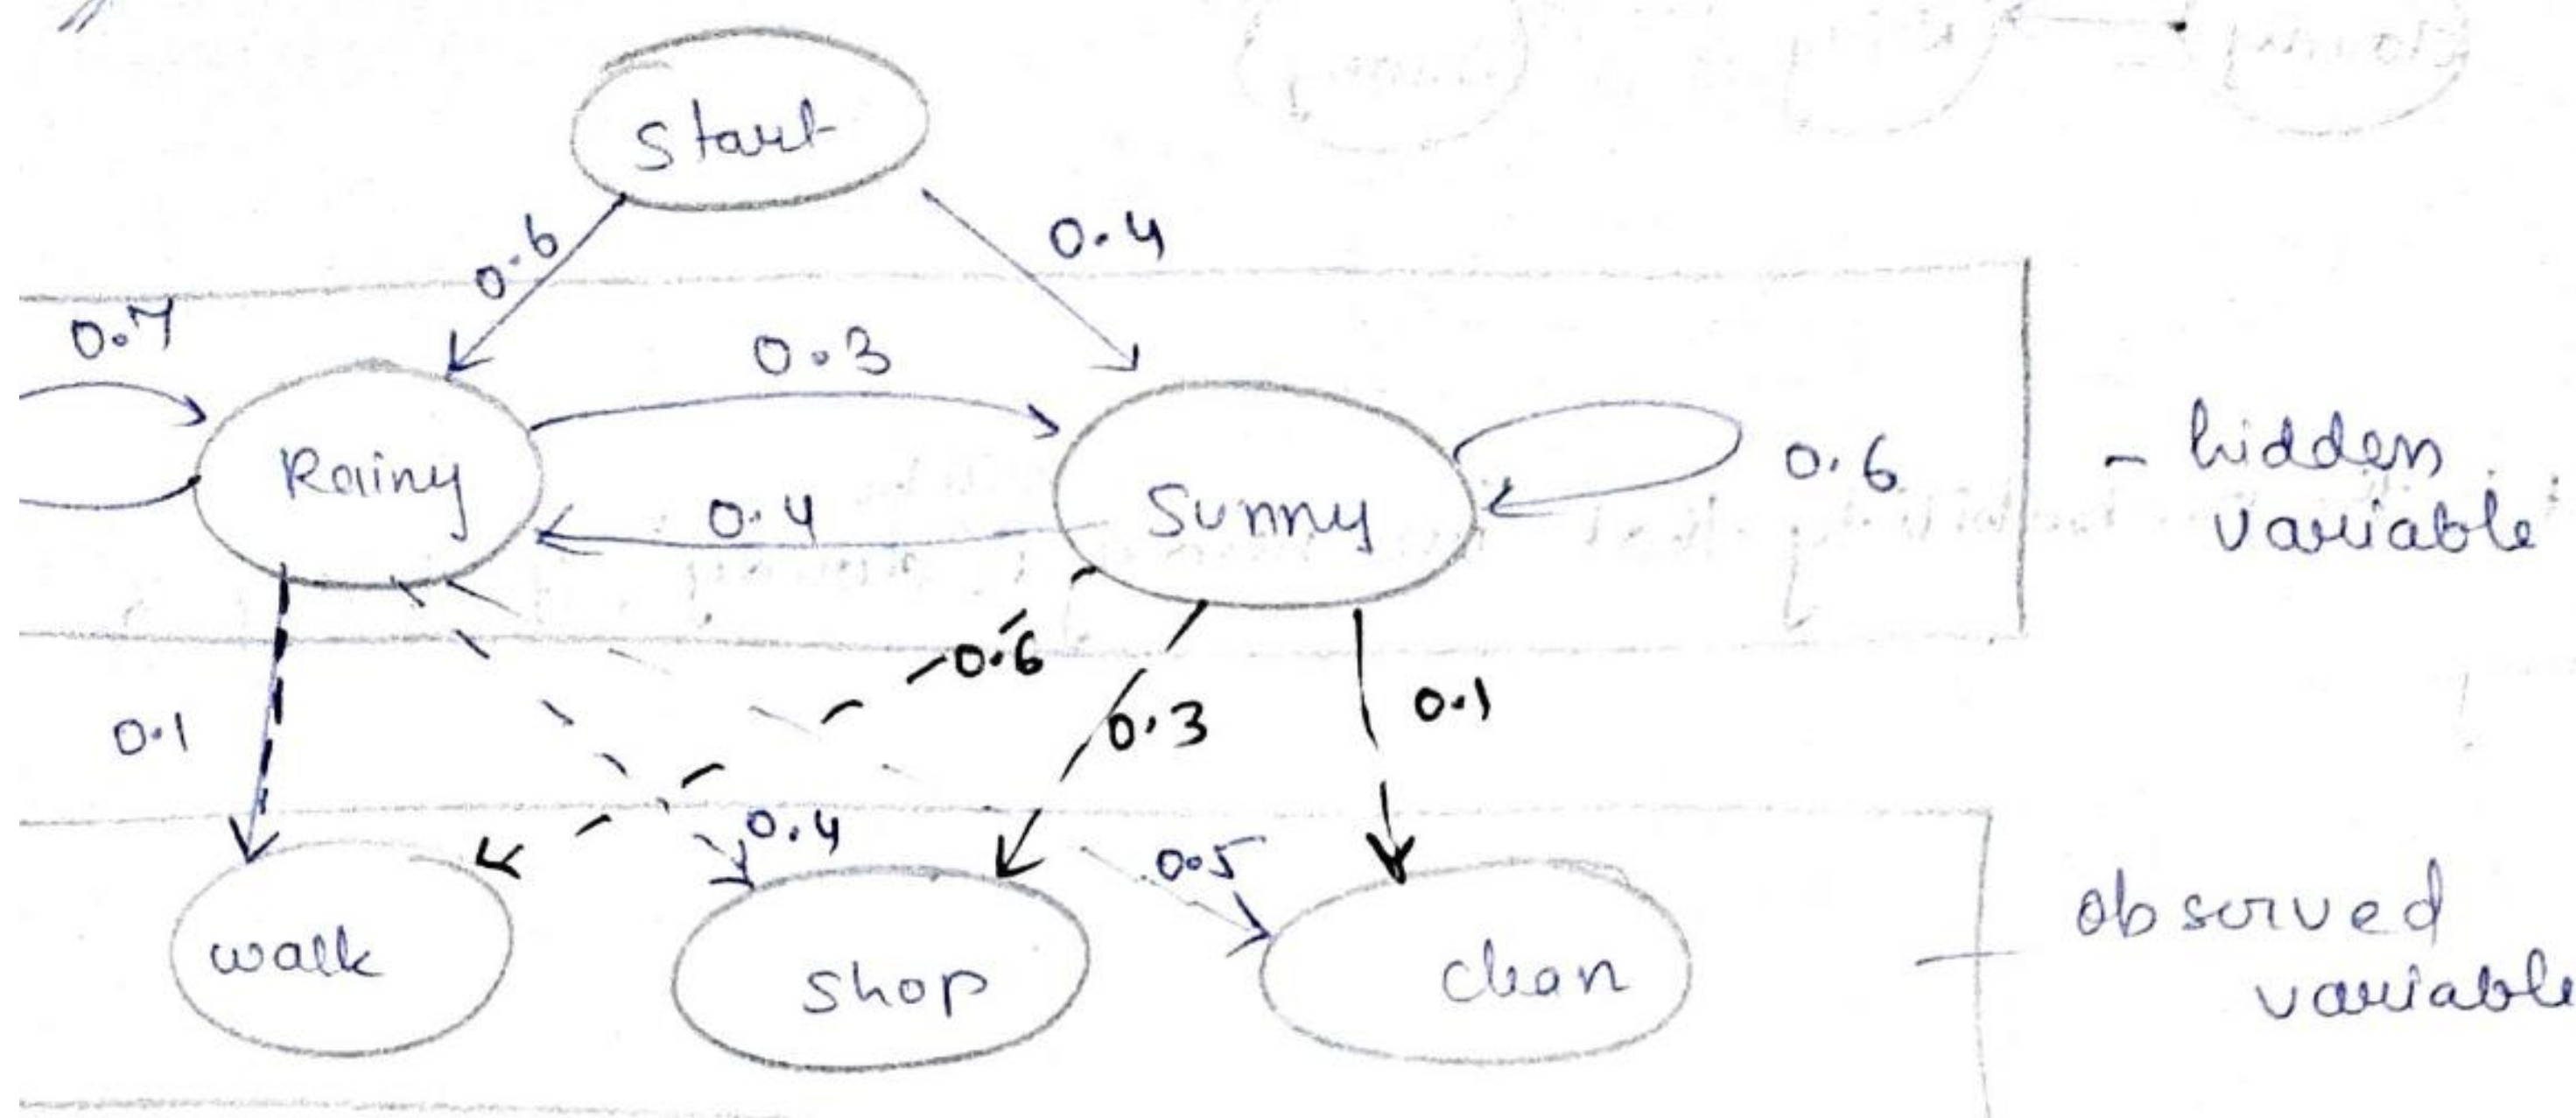 Start
0.6
0.4
0.7
0.3
Rainy
Sunny
0.6
0.4
- hidden
variable
0.6
0.3
0.1
0.1
0.4
0.5
walk
shop
clean
observed
variable